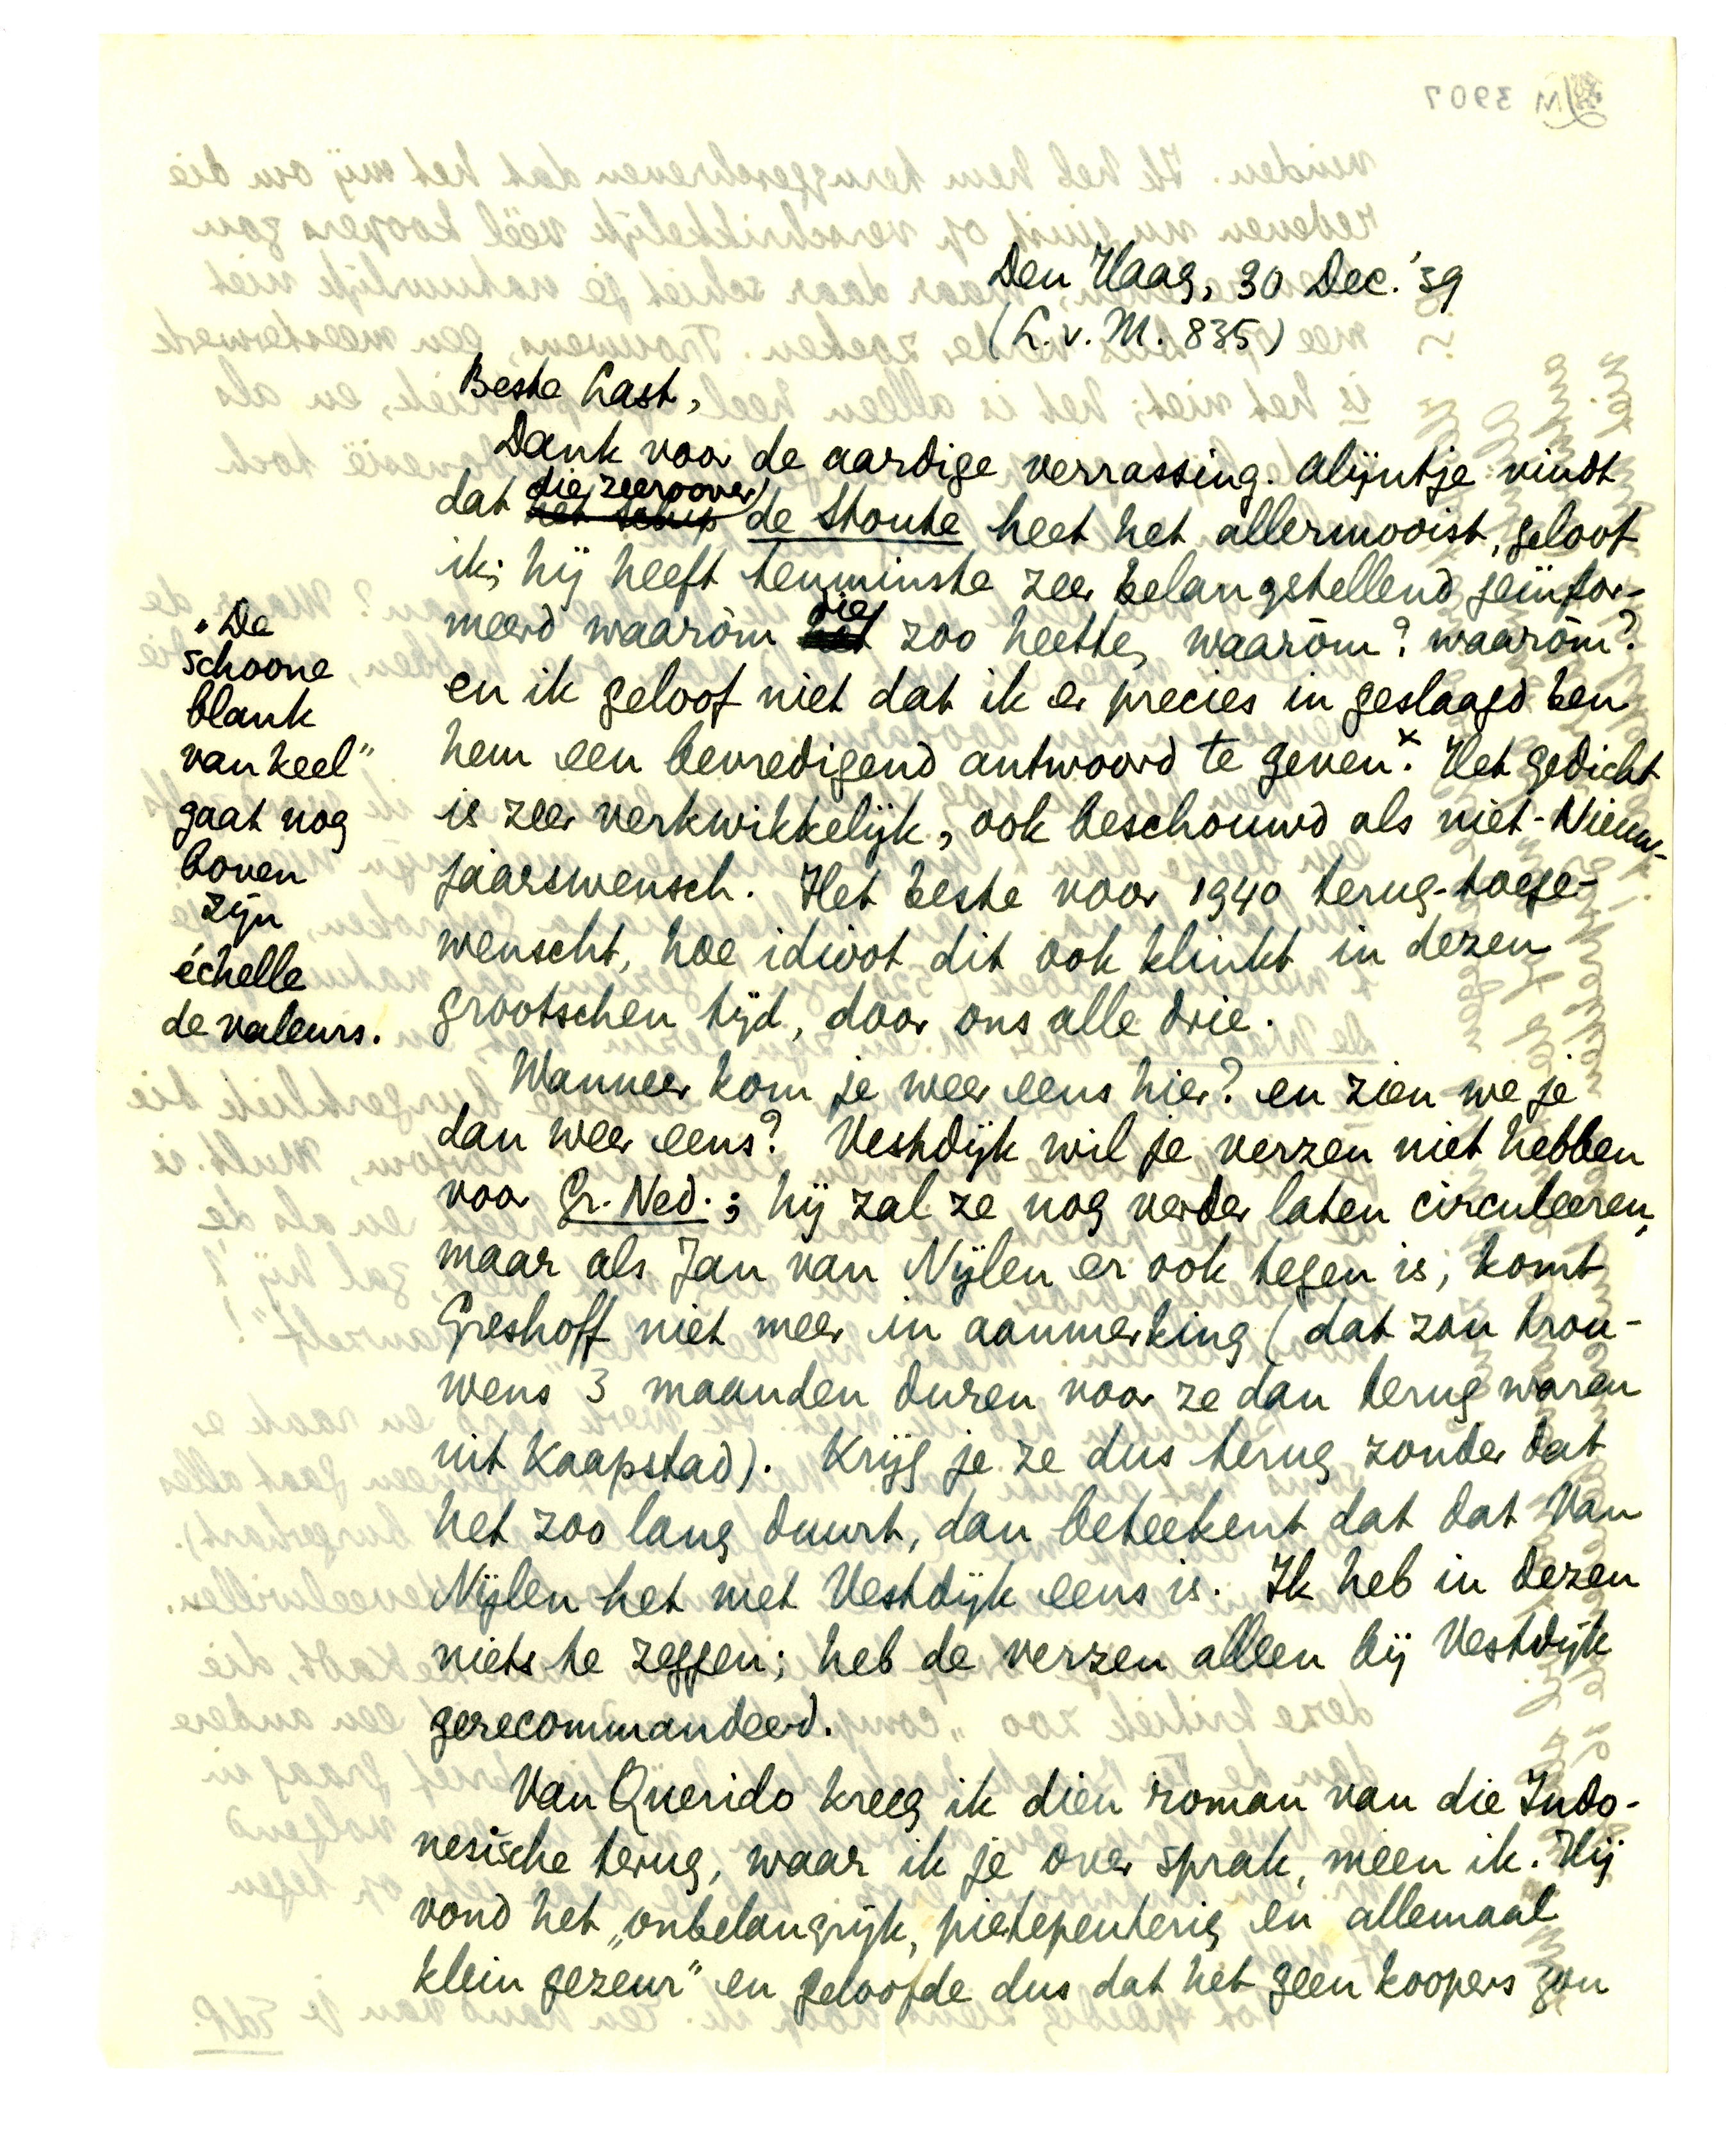 Den Haag, 30 Dec. '39
(L. v. M. 835)
Beste Last,
Dank voor de aardige verrassing. Alijntje vindt
dat die zeeroover de Stoute heet het allermooist, geloof
ik; hij heeft tenminste zeer belangstellend geïnfor-
meerd waaròm die zoo heette, waaròm? waaròm?
en ik geloof niet dat ik er precies in geslaagd ben
hem een bevredigend antwoord te geven.x Het gedicht
is zeer verkwikkelijk, ook beschouwd als niet-Nieuw-
jaarswensch. Het beste voor 1940 terug-toege-
wenscht, hoe idioot dit ook klinkt in dezen
grootschen tijd, door ons alle drie.
Wanneer kom je weer eens hier? en zien we je
dan weer eens? Vestdijk wil je verzen niet hebben
voor Gr. Ned.; hij zal ze nog verder laten circuleeren,
maar als Jan van Nijlen er ook tegen is, komt
Greshoff niet meer in aanmerking (dat zou trou-
wens 3 maanden duren voor ze dan terug waren
uit Kaapstad). Krijg je ze dus terug zonder dat
het zoo lang duurt, dan beteekent dat dat Van
Nijlen het met Vestdijk eens is. Ik heb in dezen
niets te zeggen; heb de verzen alleen bij Vestdijk
gerecommandeerd.
Van Querido kreeg ik dien roman van die Indo-
nesische terug, waar ik je over sprak, meen ik. Hij
vond het „onbelangrijk, pietepeuterig en allemaal
klein gezeur" en geloofde dus dat het geen koopers zou
„De
schoone
blank
van keel"
gaat nog
boven
zijn
échelle
de valeurs.
LM 3907